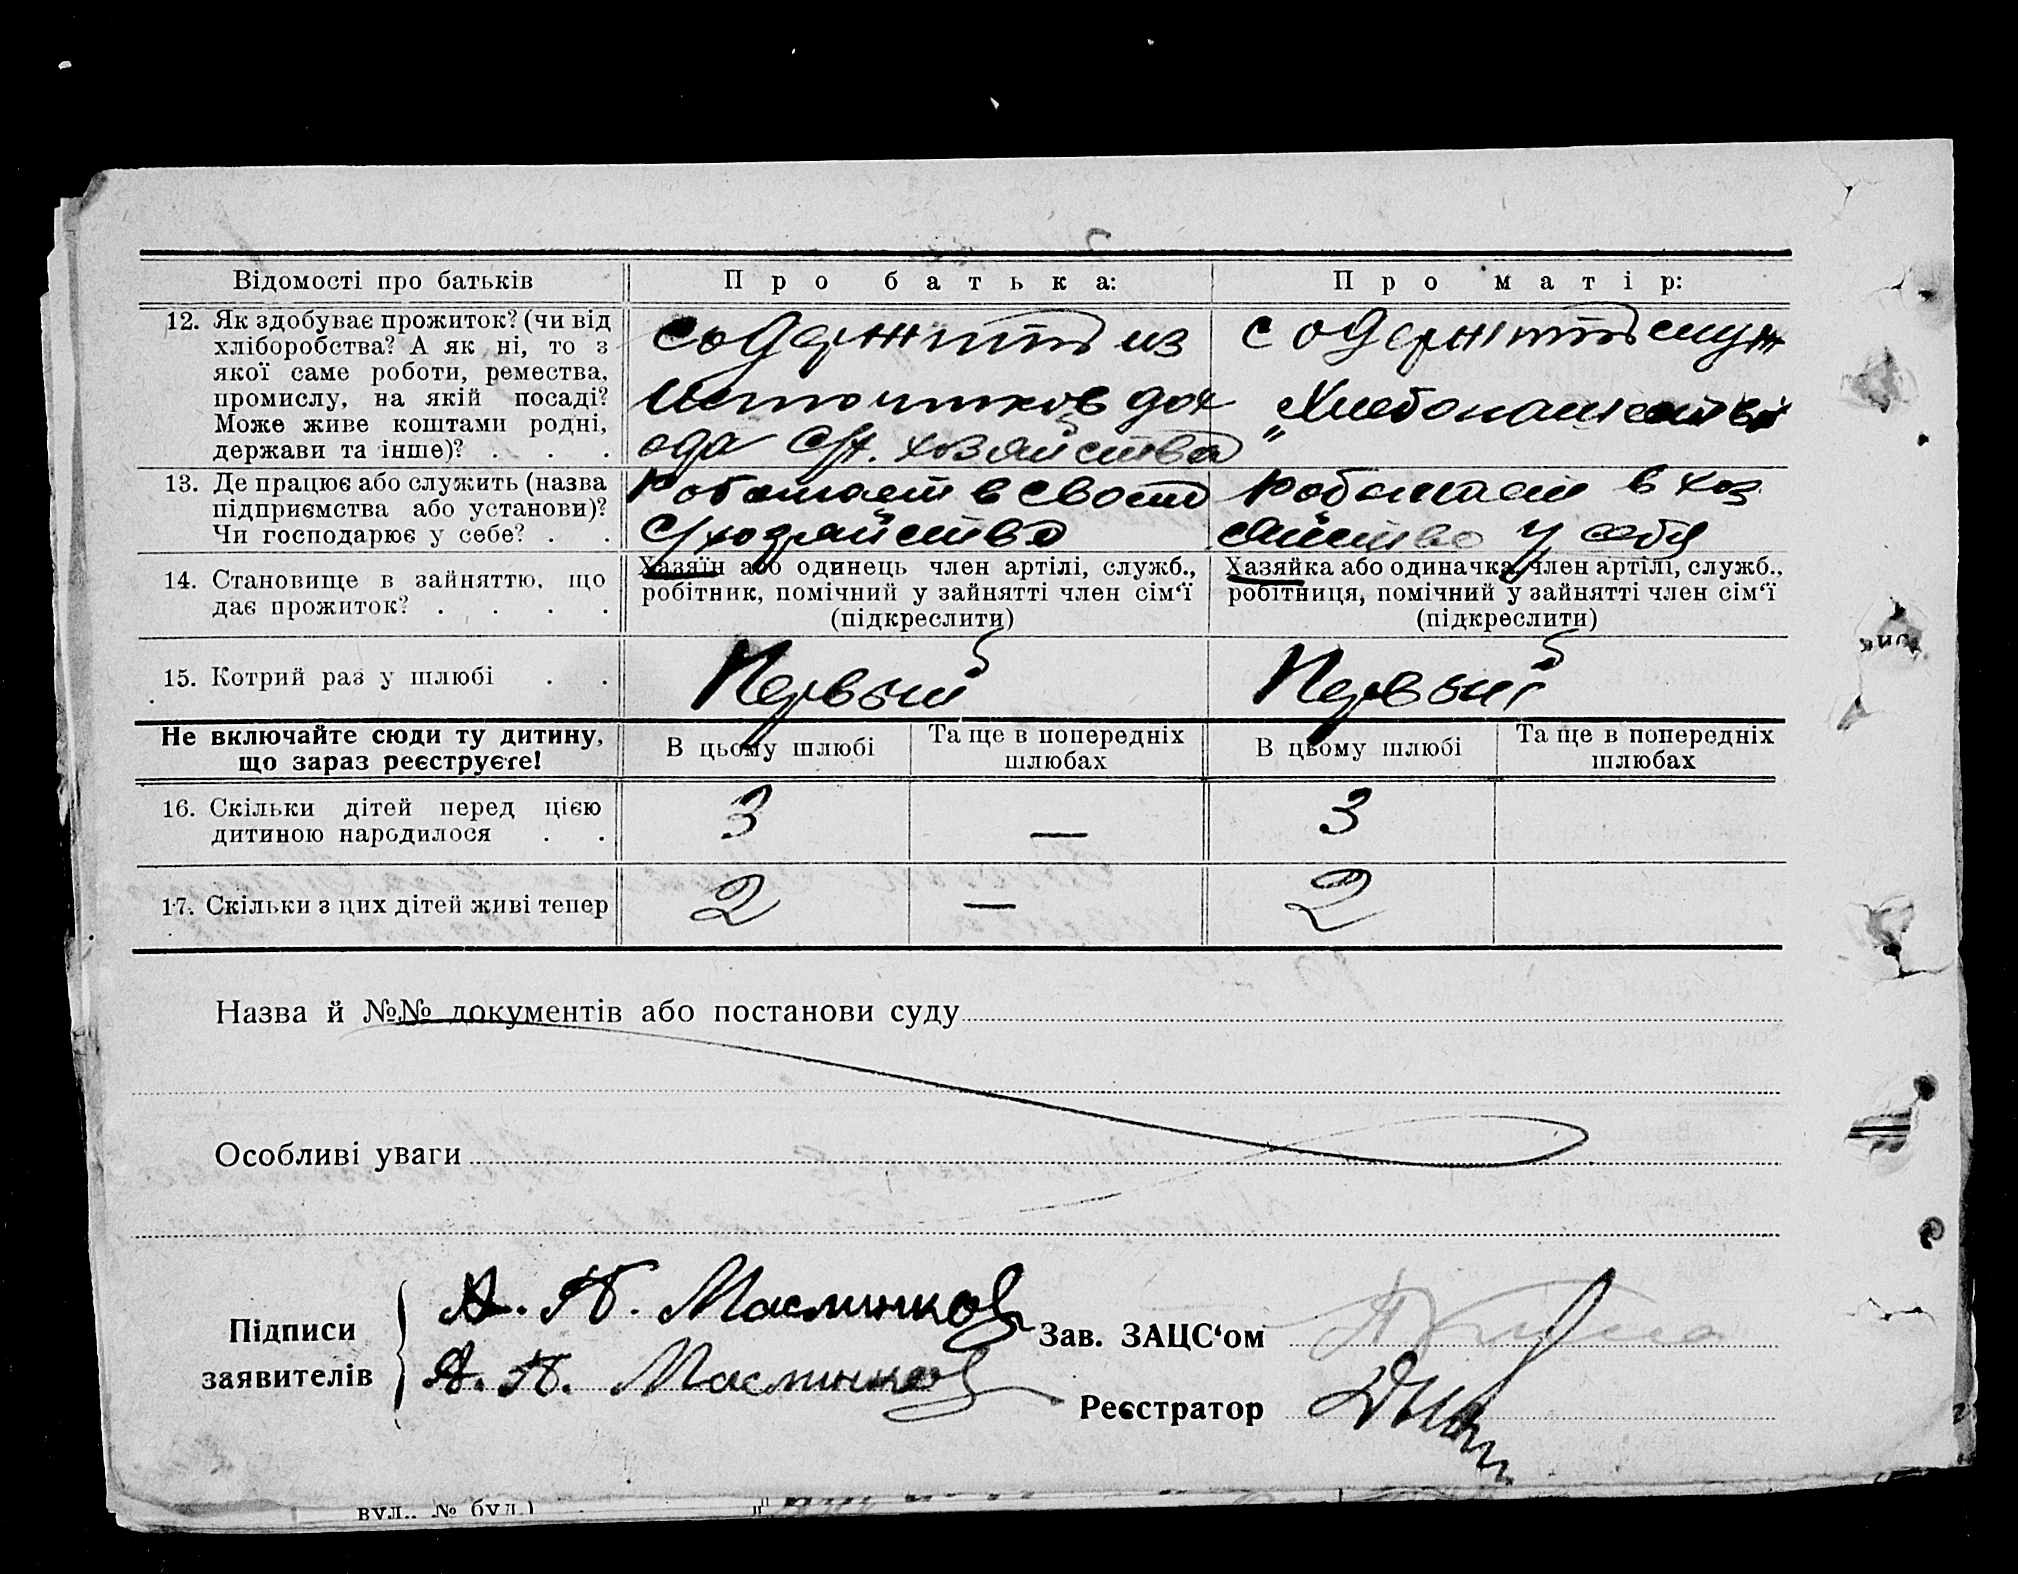 Відомості про батьків
Про батька:
Про матір:
12. Як здобуває прожиток? (чи від
хліборобства? А як ні, то з
якої саме роботи, ремества,
промислу, на якій посаді?
Може живе коштами родні,
держави та інше)? . . .
содержить из
источников дох
ода с/х. хозяйства
содержить муж
13. Де працює або служить (назва
підприємства або установи)?
Чи господарює у себе? . .
Работает в своем
с/хозяйство
работает в хоз
яйстве у себя
14. Становище в зайняттю, що
дає прожиток? . . . .
Хазяїн або одинець член артілі, служб.,
робітник, помічний у зайнятті член сім'ї
(підкреслити)
Хазяйка або одиначка, член артілі, служб.,
робітниця, помічний у зайнятті член сім'ї
(підкреслити)
15. Котрий раз у шлюбі . .
Первый
Первый
Не включайте сюди ту дитину,
що зараз реєструєте!
В цьому шлюбі
Та ще в попередніх
шлюбах
В цьому шлюбі
Та ще в попередніх
шлюбах
16. Скільки дітей перед цією
дитиною народилося . .
3
—
3
17. Скільки з цих дітей живі тепер
2
—
2
Назва й №№ документів або постанови суду
Особливі уваги
Підписи
заявителів
А. П. Маслинков
А. П. Маслинков
Зав. ЗАЦС'ом
Реєстратор
вул., № буд.)